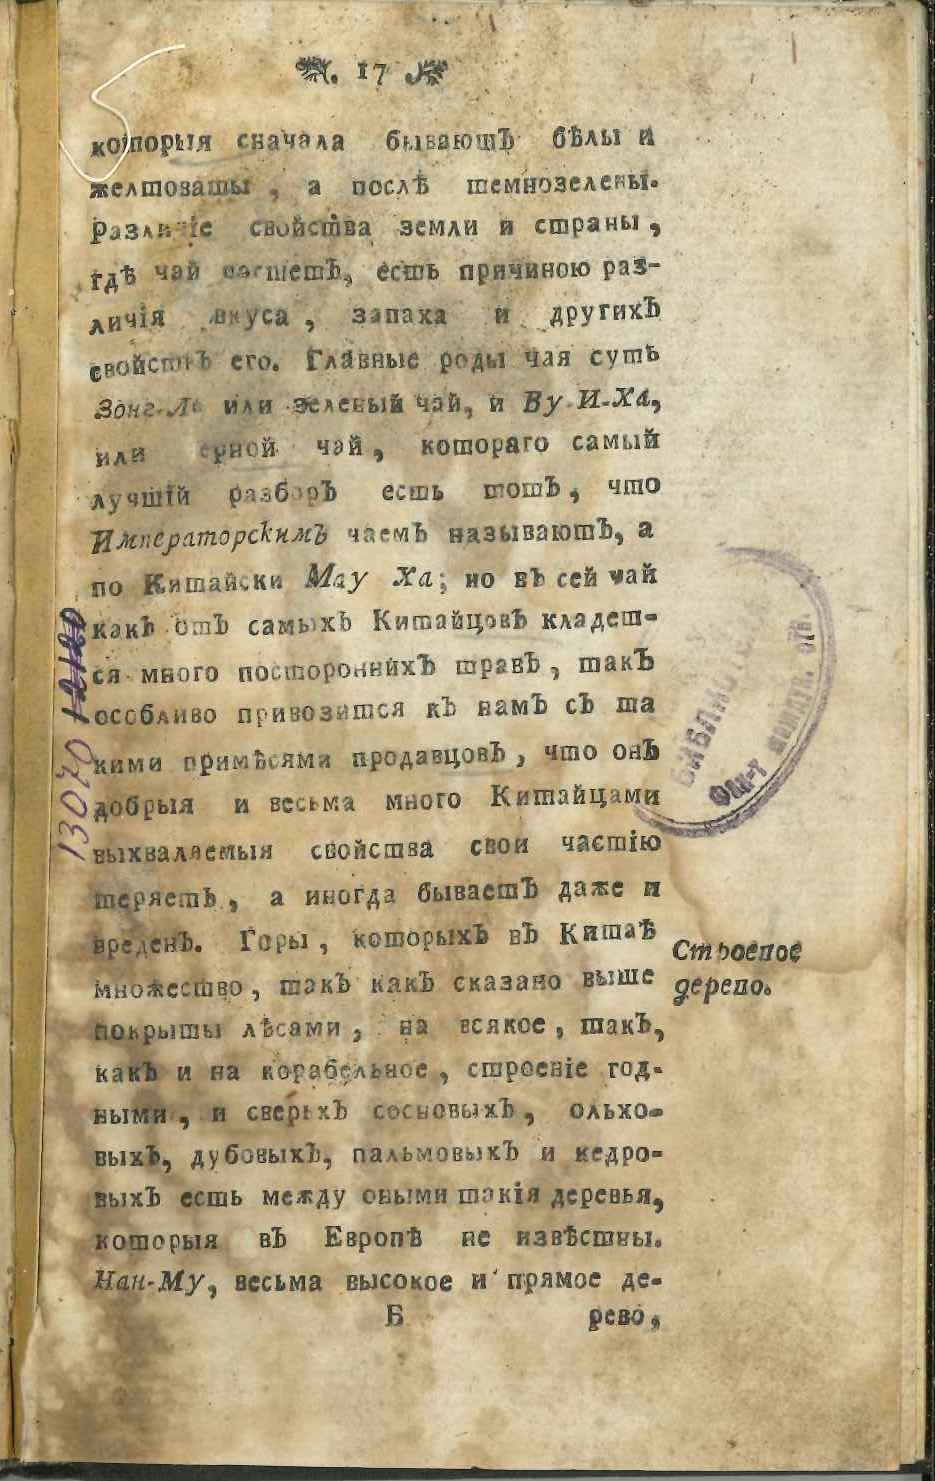 17
которыя сначала бываютъ бѣлы и
желтоваты, а послѣ темнозелены.
Различіе свойства земли и страны,
гдѣ чай растетъ, есть причиною раз-
личія вкуса, запаха и другихъ
свойствъ его. Главные роды чая суть
Зонг-Ло или зеленый чай, и Ву-И-Ха,
или черной чай, котораго самый
лучшій разборъ есть тотъ, что
Императорскимъ чаемъ называютъ, а
по Китайски Мау Ха; но въ сей чай
какъ отъ самыхъ Китайцовъ кладет-
ся много постороннихъ травъ, такъ
особливо привозится къ намъ съ та
кими примѣсями продавцовъ, что онъ
добрыя и весьма много Китайцами
выхваляемыя свойства свои частію
теряетъ, а иногда бываетъ даже и
вреденъ. Горы, которыхъ въ Китаѣ
множество, такъ какъ сказано выше
покрыты лѣсами, на всякое, такъ,
какъ и на корабельное, строеніе год-
ными, и сверьхъ сосновыхъ, ольхо-
выхъ, дубовыхъ, пальмовыхъ и кедро-
выхъ есть между оными такія деревья,
которыя въ Европѣ не извѣстны.
Нан-Му, весьма высокое и прямое де-
Б рево,
Строевое
дерево.
13070
БИБЛИОТЕ
Фан-т